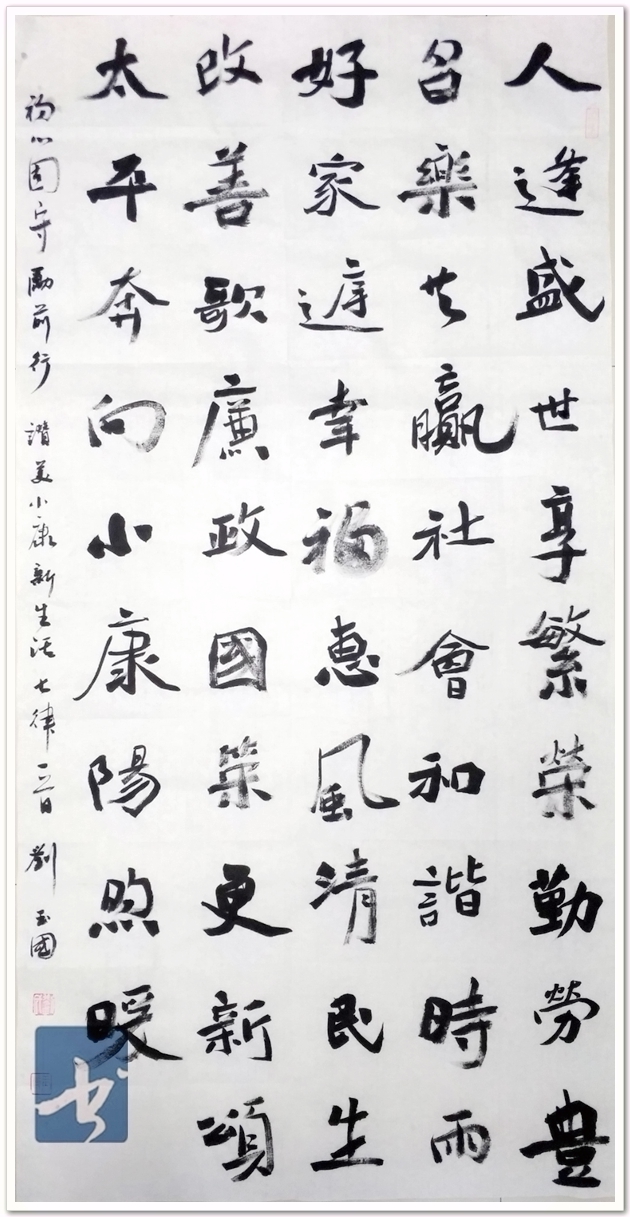 人逢盛世享繁榮勤勞豊
召樂共贏社會和諧時雨
好家庭幸福惠風清民生
改善歌廉政國策更新頌
太平奔向小康陽煦暖
初心固守勵前行 讚美小康新生活 七律一首 劉玉國
书